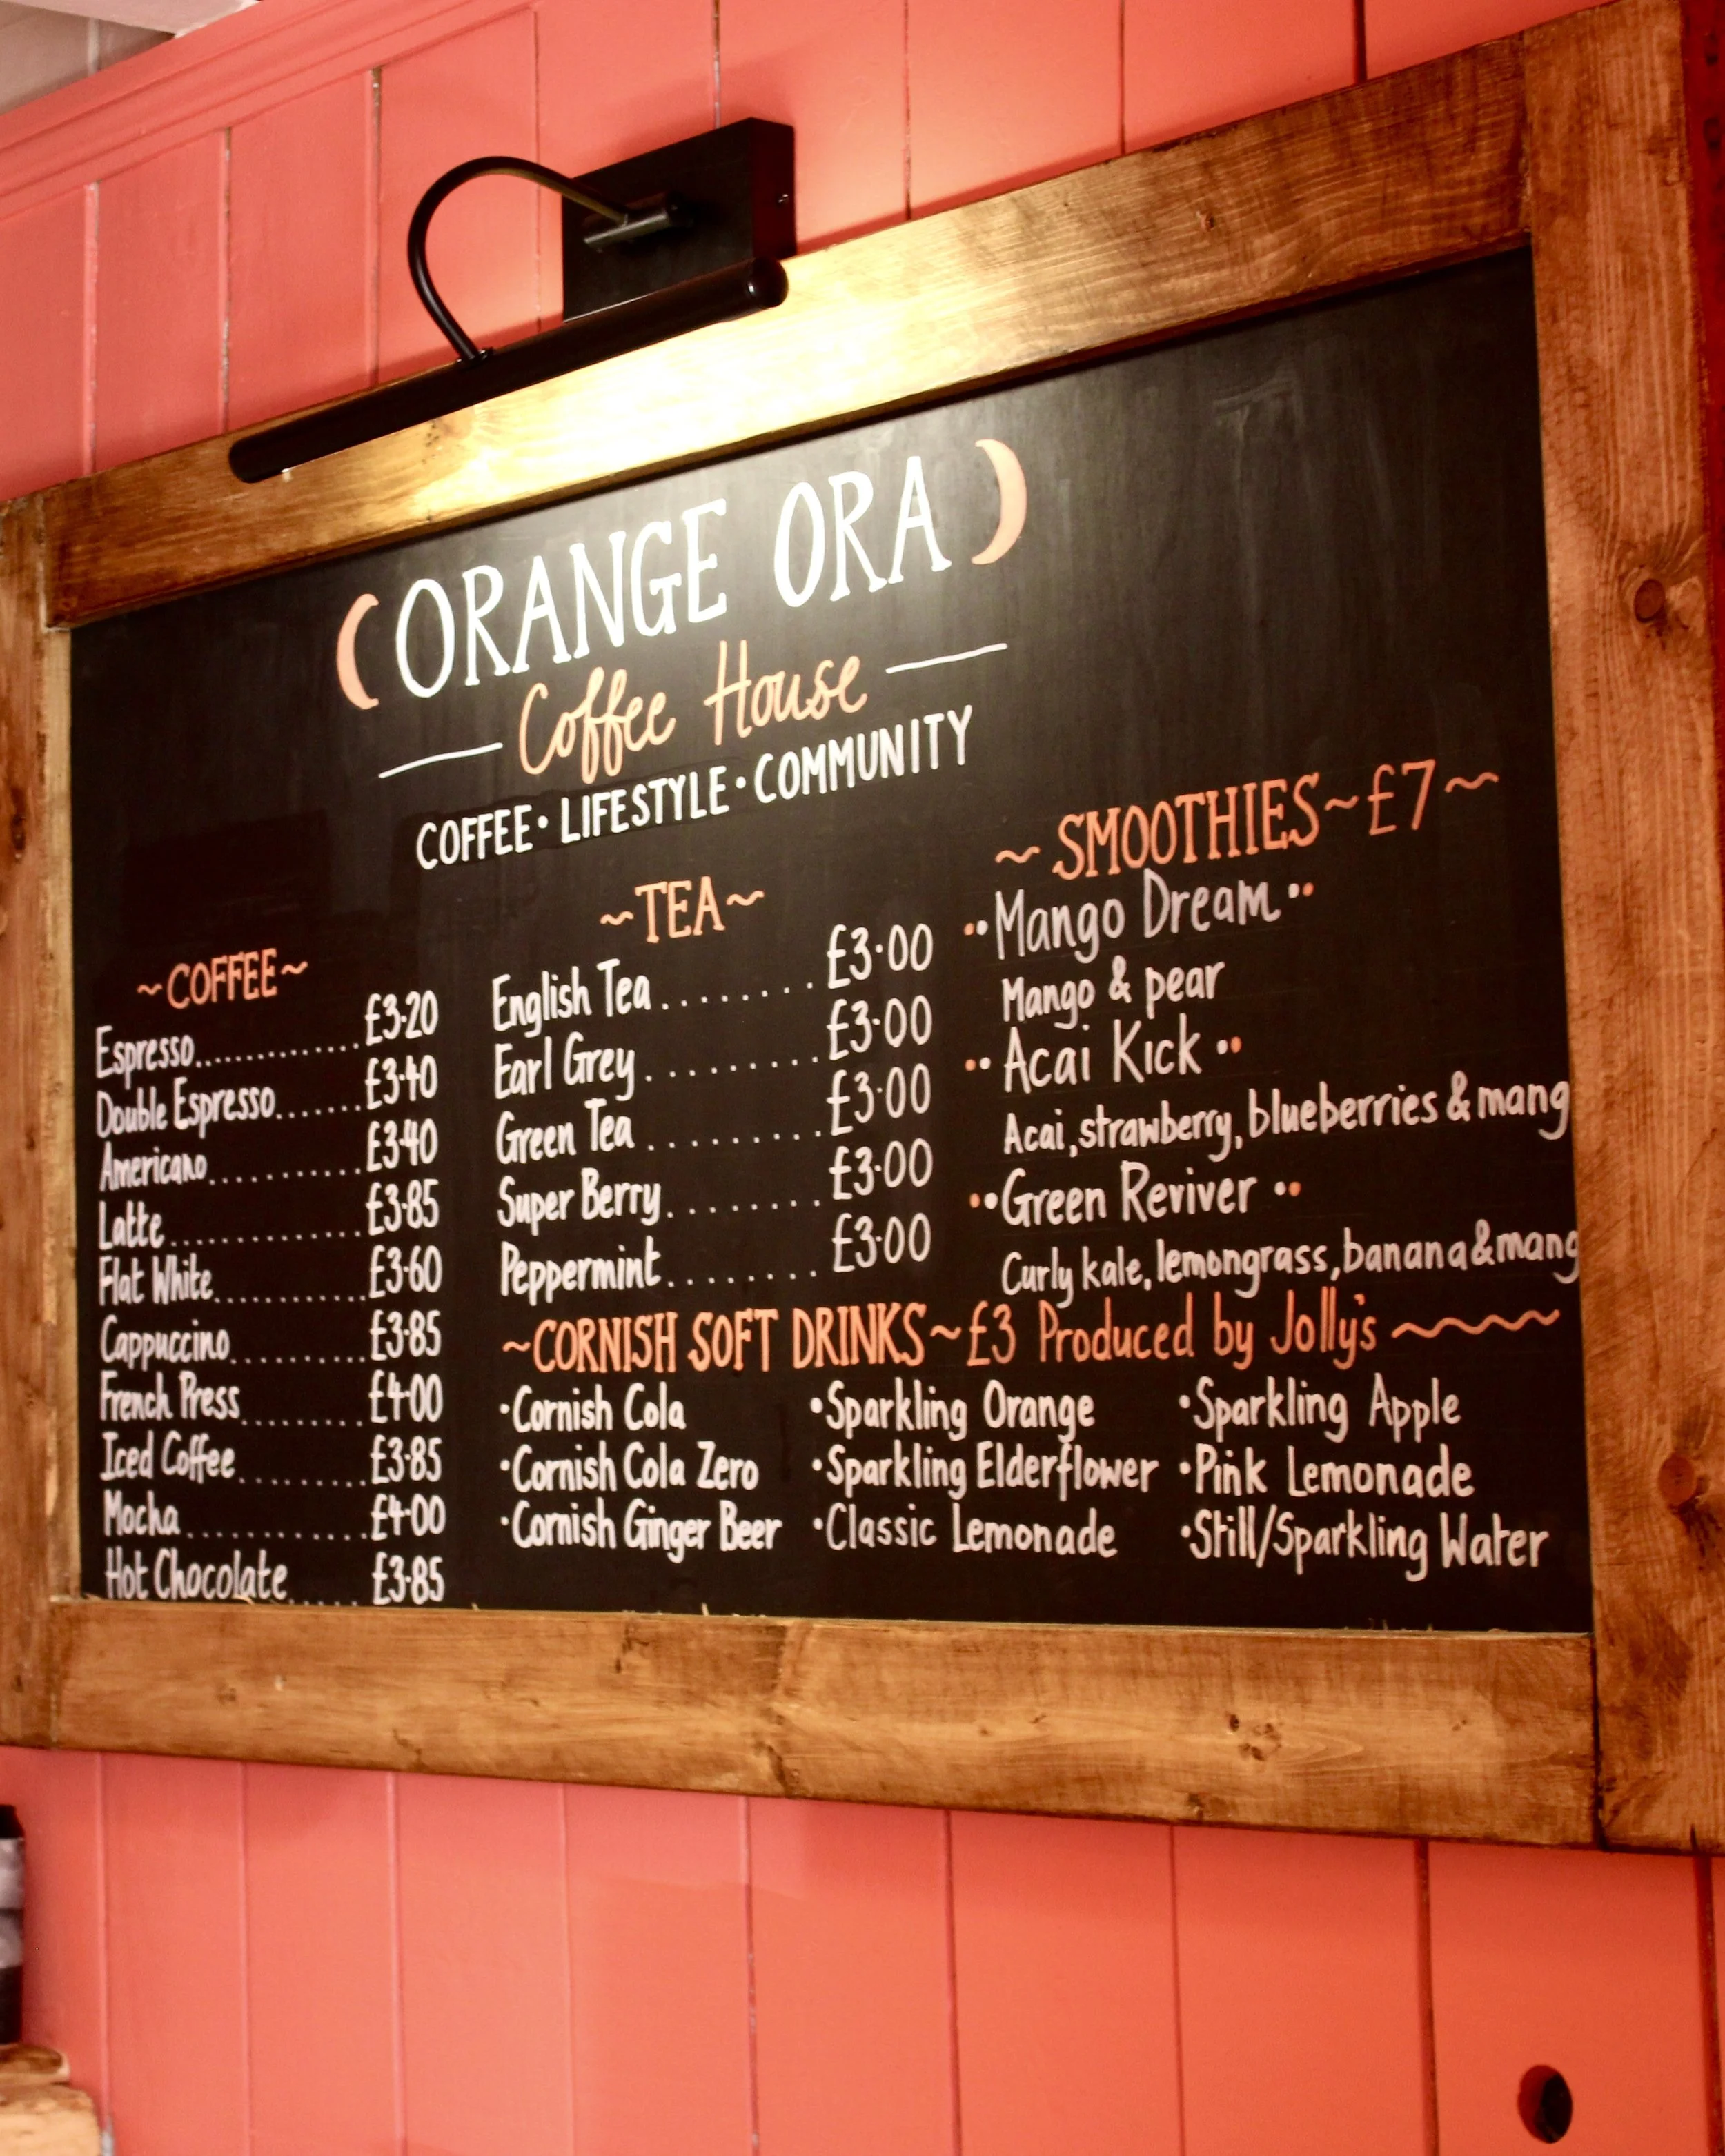 ORANGE ORA
Coffee House
COFFEE • LIFESTYLE • COMMUNITY
~COFFEE~
Espresso.............. £3·20
Double Espresso....... £3·40
Americano............ £3·40
Latte................ £3·85
Flat White............. £3·60
Cappuccino.......... £3·85
French Press......... £4·00
Iced Coffee......... £3·85
Mocha............. £4·00
Hot Chocolate..... £3·85
~TEA~
English Tea......... £3·00
Earl Grey......... £3·00
Green Tea......... £3·00
Super Berry........ £3·00
Peppermint........ £3·00
~ SMOOTHIES~£7~
••Mango Dream••
Mango & pear
•• Acai Kick ••
Acai, strawberry, blueberries & mang
••Green Reviver ••
Curly kale, lemongrass, banana & mang
~CORNISH SOFT DRINKS~£3 Produced by Jolly's
•Cornish Cola •Sparkling Orange •Sparkling Apple
•Cornish Cola Zero •Sparkling Elderflower •Pink Lemonade
•Cornish Ginger Beer •Classic Lemonade •Still/Sparkling Water